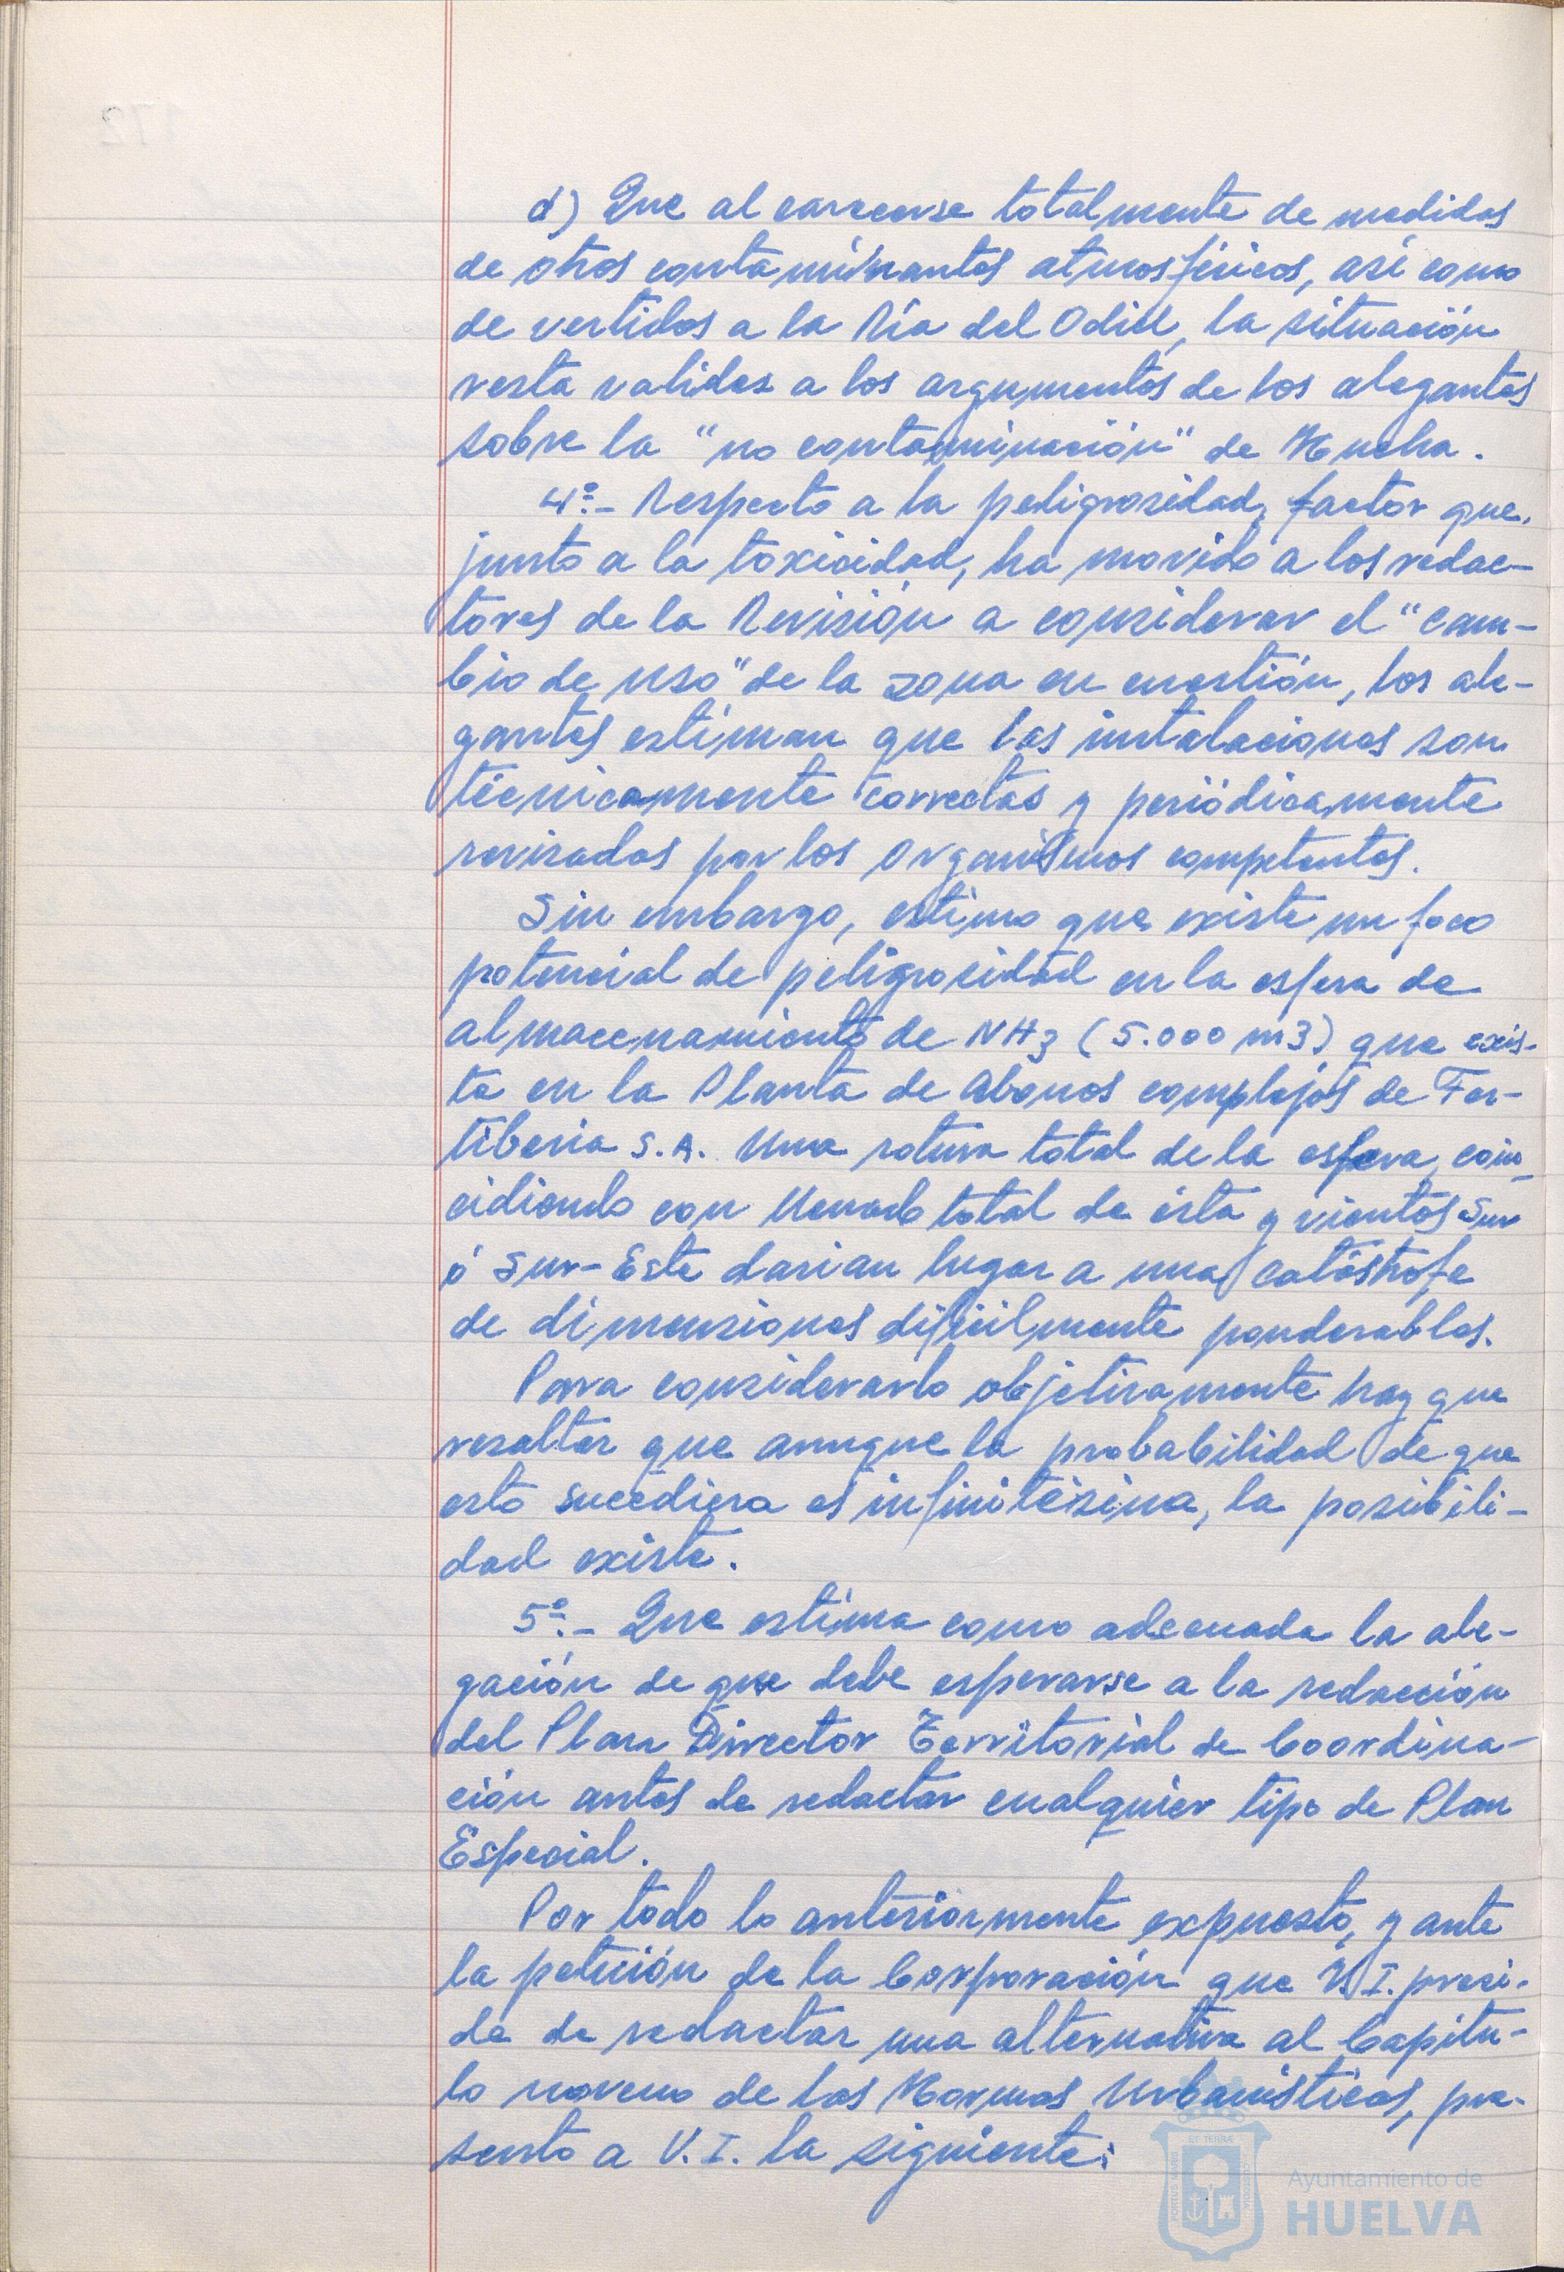 d) Que al carecerse totalmente de medidas
de otros contaminantes atmosféricos, así como
de vertidos a la Ría del Odiel, la situación
resta validez a los argumentos de los alegantes
sobre la "no contaminación" de Huelva.
4º.- Respecto a la peligrosidad, factor que,
junto a la toxicidad, ha movido a los redac-
tores de la Revisión a considerar el "cam-
bio de uso" de la zona en cuestión, los ale-
gantes estiman que las instalaciones son
técnicamente correctas y periódicamente
revisadas por los Organismos competentes.
Sin embargo, estimo que existe un foco
potencial de peligrosidad en la esfera de
almacenamiento de NH3 (5.000 m3) que exis-
te en la Planta de Abonos complejos de Fer-
tiberia S.A. Una rotura total de la esfera, coin-
cidiendo con llenado total de ésta y vientos Sur
ó Sur-Este darian lugar a una catástrofe
de dimensiones dificilmente ponderables.
Para considerarlo objetivamente hay que
resaltar que aunque la probabilidad de que
esto sucediera es infinitésima, la posibili-
dad existe.
5º.- Que estima como adecuada la ale-
gación de que debe esperarse a la redacción
del Plan Director Territorial de Coordina-
ción antes de redactar cualquier tipo de Plan
Especial.
Por todo lo anteriormente expuesto, y ante
la petición de la Corporación que V.I. presi-
de de redactar una alternativa al Capítu-
lo noveno de las Normas Urbanísticas, pre-
sento a V.I. la siguiente:
Ayuntamiento de
HUELVA